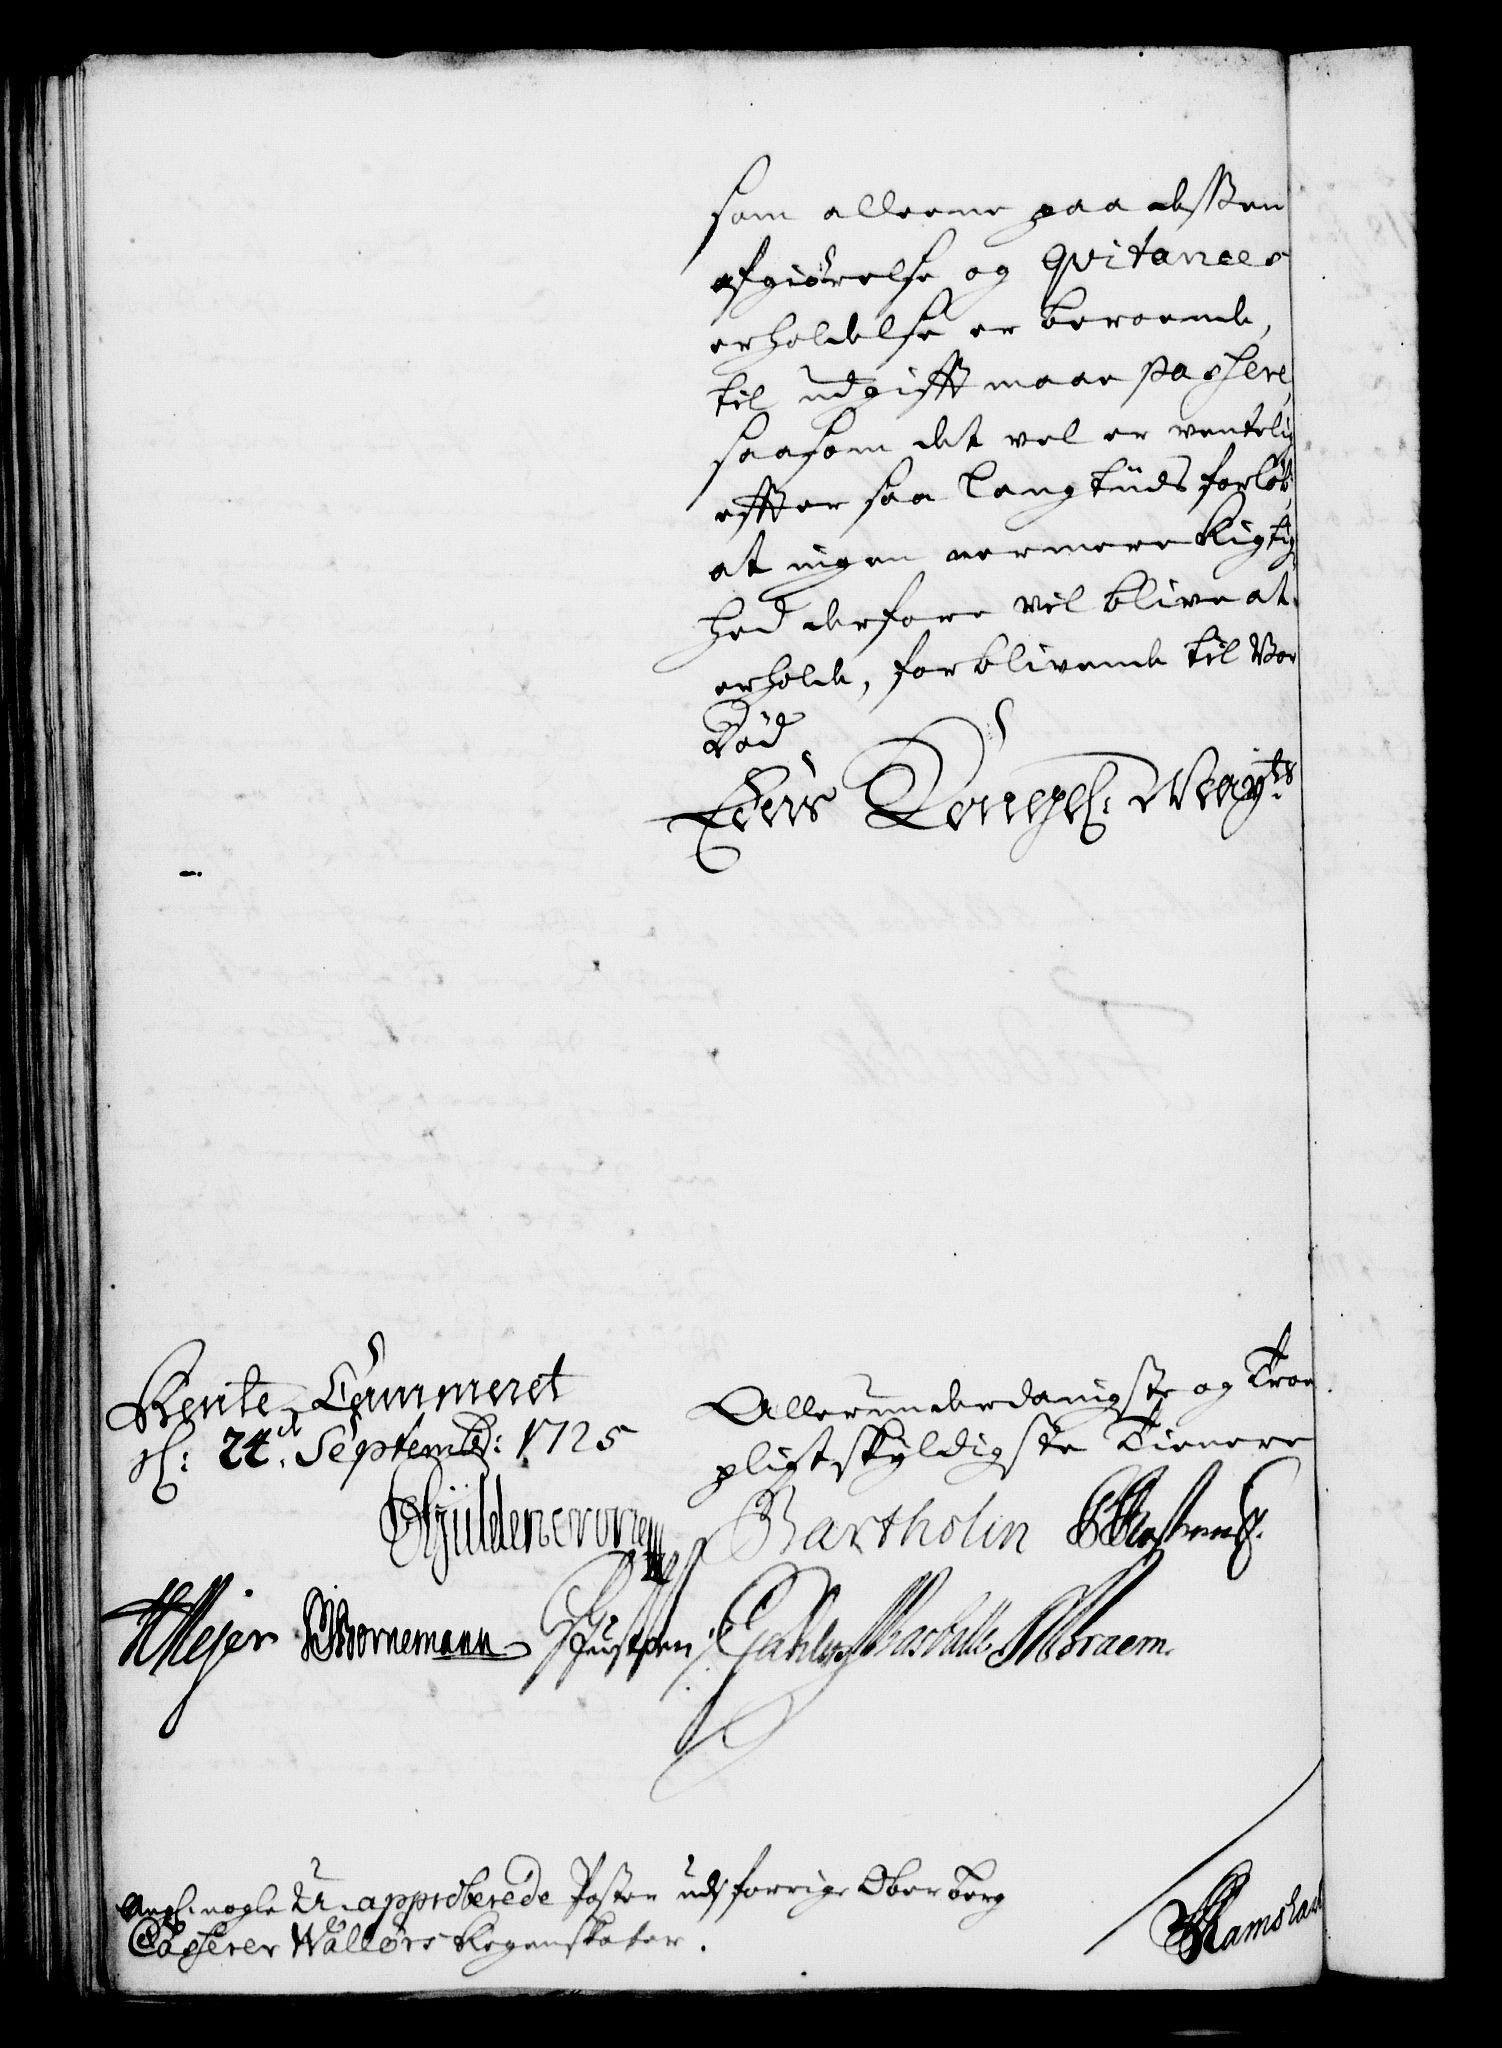 som alleene paa deßen
afgiørelse og qvitances
erholdelse er beroende,
til udgifft maae passere,
saasom det vel er ventelig
effter saa lang tiids forløb,
at ingen nermere Rigtig-
hed derfore vil blive at
erholde, forblivende til Vor
Død
Eders Kongel: Mayts
Rente Cammeret
d: 24de Septembr: 1725
Allerunderdanigste og Troe
pligtskyldigste Tienere
Gyldencrone
Bartholin
Meyer Bornemann
Angl: nogle U-approberede Poster udj forrige Ober berg
Casserer Wallørs Regenskaber.
Ramshart